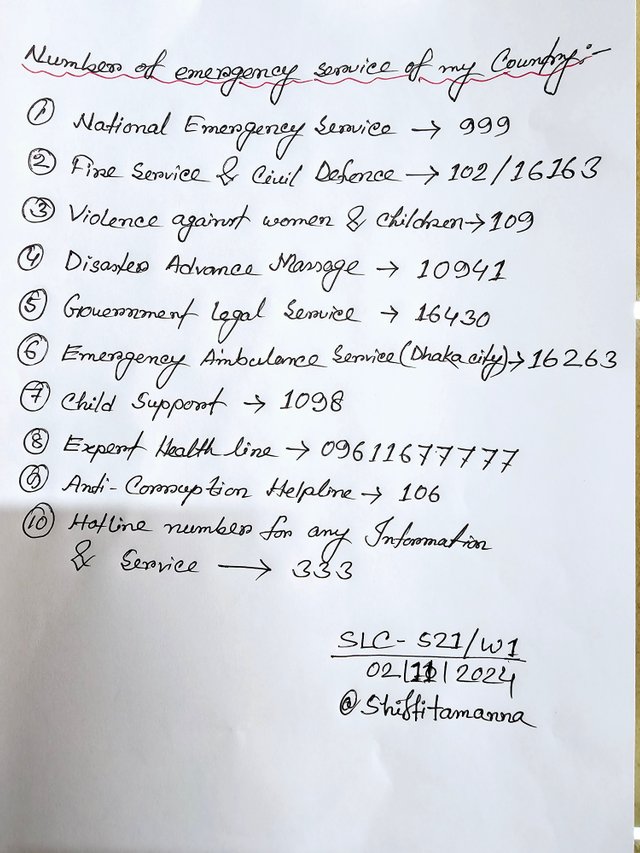 Number of emergency service of my Country:-
① National Emergency Service → 999
② Fire Service & Civil Defence → 102/16163
③ Violence against women & children → 109
④ Disaster Advance Massage → 10941
⑤ Government Legal Service → 16430
⑥ Emergency Ambulance Service (Dhaka city) → 16263
⑦ Child Support → 1098
⑧ Expert Health line → 09611677777
⑨ Anti-Corruption Helpline → 106
⑩ Hotline number for any Information
& Service → 333
SLC- S21/W1
02/11/2024
@Shiftitamanna